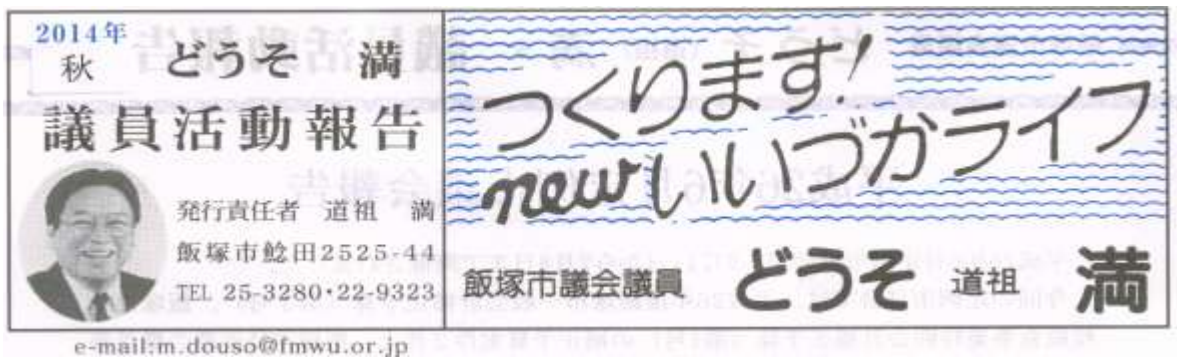 2014年
秋
どうそ 満
議員活動報告
発行責任者 道祖 満
飯塚市鯰田2525-44
TEL 25-3280・22-9323
e-mail:m.douso@fmwu.or.jp
つくります!
newいいづかライフ
飯塚市議会議員 どうそ 道祖 満